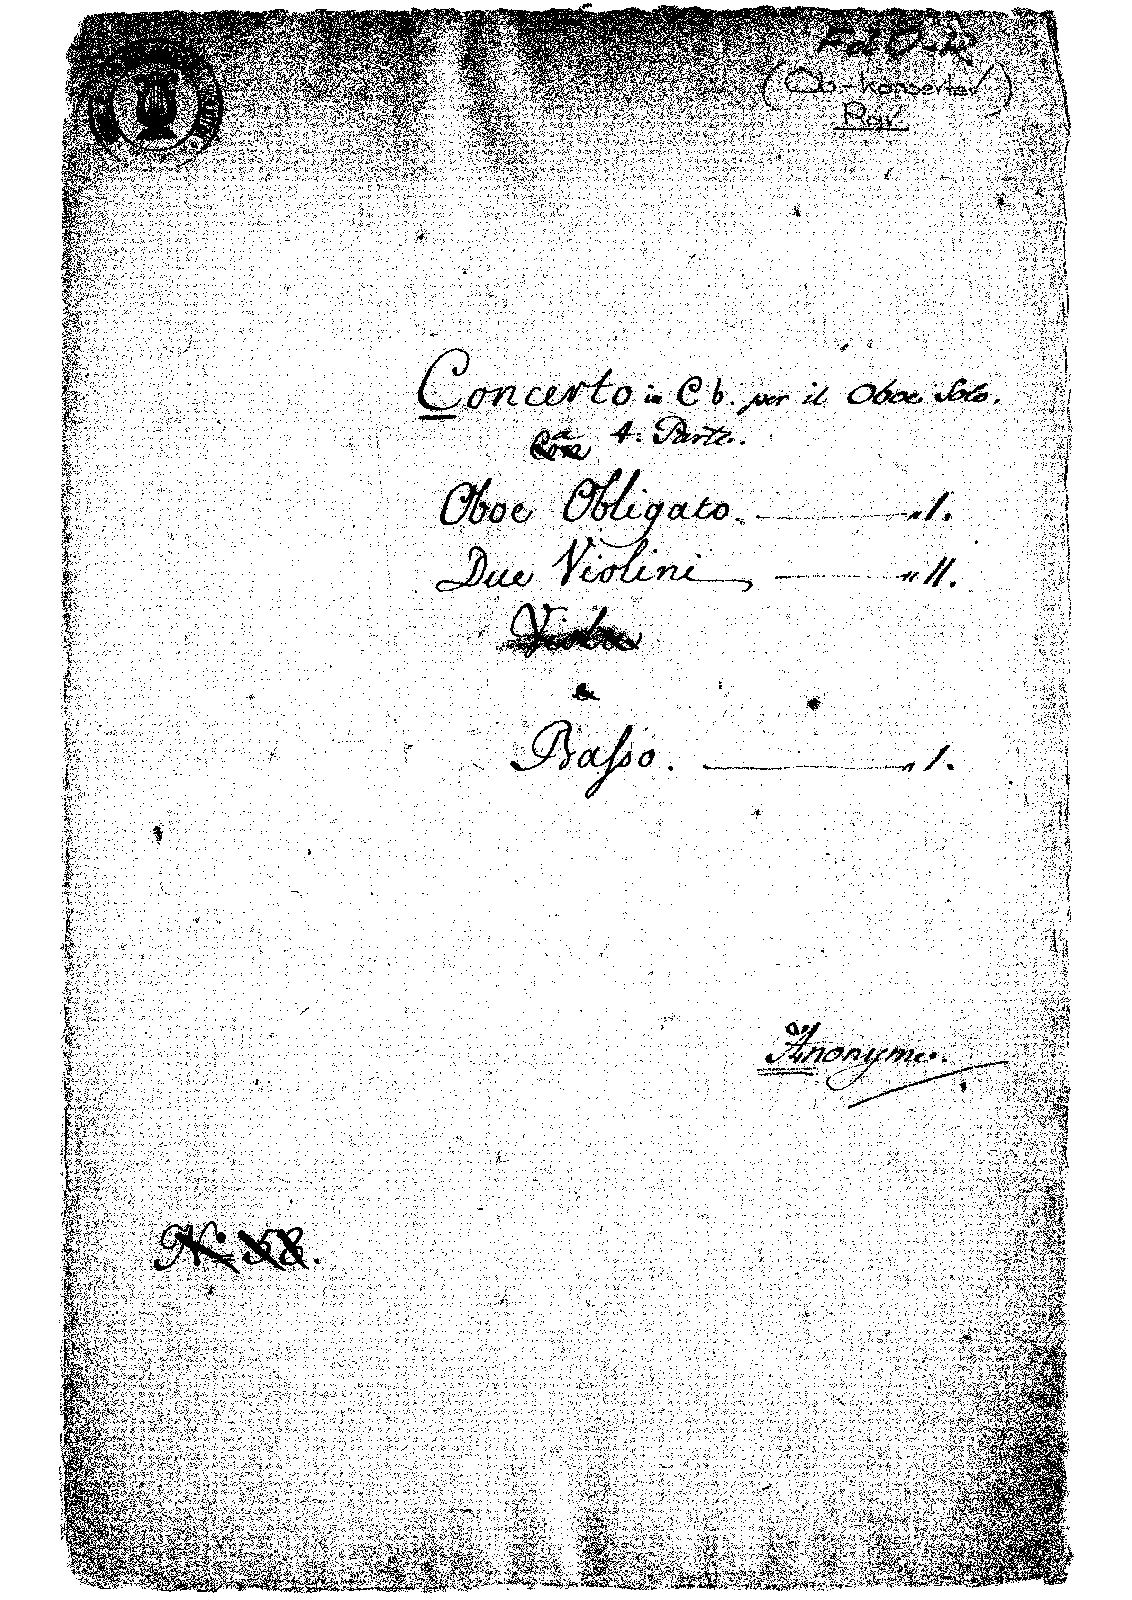 (Ob-konserter)
Rar
Concerto in C b. per il Oboe Solo.
a 4. Parte.
Oboe Obligato. ———— " 1.
Due Violini, ———— " 11.
Viola
e
Basso. ———— " 1.
Di Anonymo.
No